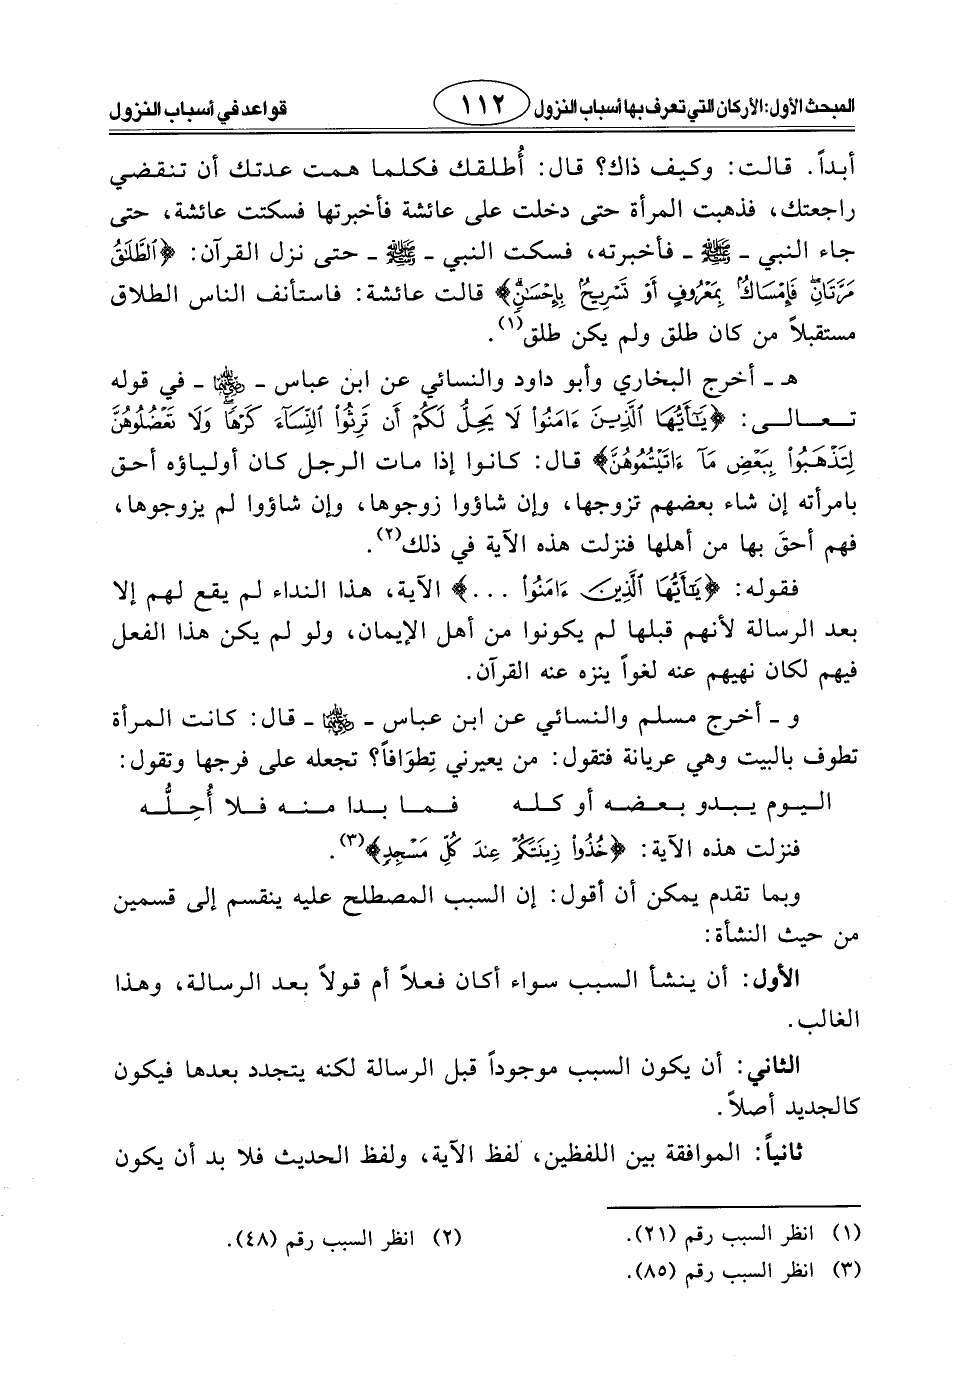 المبحث الأول: الأركان التي تعرف بها أسباب النزول ١١٢ قواعد في أسباب النزول
أبداً. قالت: وكيف ذاك؟ قال: أُطلقك فكلما همت عدتك أن تنقضي
راجعتك، فذهبت المرأة حتى دخلت على عائشة فأخبرتها فسكتت عائشة، حتى
جاء النبي - ﷺ - فأخبرته، فسكت النبي - ﷺ - حتى نزل القرآن: ﴿ٱلطَّلَٰقُ
مَرَّتَانِۖ فَإِمۡسَاكُۢ بِمَعۡرُوفٍ أَوۡ تَسۡرِيحُۢ بِإِحۡسَٰنٖۗ﴾ قالت عائشة: فاستأنف الناس الطلاق
مستقبلاً من كان طلق ولم يكن طلق(١).
هـ - أخرج البخاري وأبو داود والنسائي عن ابن عباس - رضي الله عنهما - في قوله
تعالى: ﴿يَٰٓأَيُّهَا ٱلَّذِينَ ءَامَنُواْ لَا يَحِلُّ لَكُمۡ أَن تَرِثُواْ ٱلنِّسَآءَ كَرۡهٗاۖ وَلَا تَعۡضُلُوهُنَّ
لِتَذۡهَبُواْ بِبَعۡضِ مَآ ءَاتَيۡتُمُوهُنَّ﴾ قال: كانوا إذا مات الرجل كان أولياؤه أحق
بامرأته إن شاء بعضهم تزوجها، وإن شاؤوا زوجوها، وإن شاؤوا لم يزوجوها،
فهم أحقَ بها من أهلها فنزلت هذه الآية في ذلك(٢).
فقوله: ﴿يَٰٓأَيُّهَا ٱلَّذِينَ ءَامَنُواْ ...﴾ الآية، هذا النداء لم يقع لهم إلا
بعد الرسالة لأنهم قبلها لم يكونوا من أهل الإيمان، ولو لم يكن هذا الفعل
فيهم لكان نهيهم عنه لغواً ينزه عنه القرآن.
و - أخرج مسلم والنسائي عن ابن عباس - رضي الله عنهما - قال: كانت المرأة
تطوف بالبيت وهي عريانة فتقول: من يعيرني تِطوَافاً؟ تجعله على فرجها وتقول:
اليوم يبدو بعضه أو كله فما بدا منه فلا أُحِلُّه
فنزلت هذه الآية: ﴿خُذُواْ زِينَتَكُمۡ عِندَ كُلِّ مَسۡجِدٖ﴾(٣).
وبما تقدم يمكن أن أقول: إن السبب المصطلح عليه ينقسم إلى قسمين
من حيث النشأة:
الأول: أن ينشأ السبب سواء أكان فعلاً أم قولاً بعد الرسالة، وهذا
الغالب.
الثاني: أن يكون السبب موجوداً قبل الرسالة لكنه يتجدد بعدها فيكون
كالجديد أصلاً.
ثانياً: الموافقة بين اللفظين، لفظ الآية، ولفظ الحديث فلا بد أن يكون
(١) انظر السبب رقم (٢١). (٢) انظر السبب رقم (٤٨).
(٣) انظر السبب رقم (٨٥).